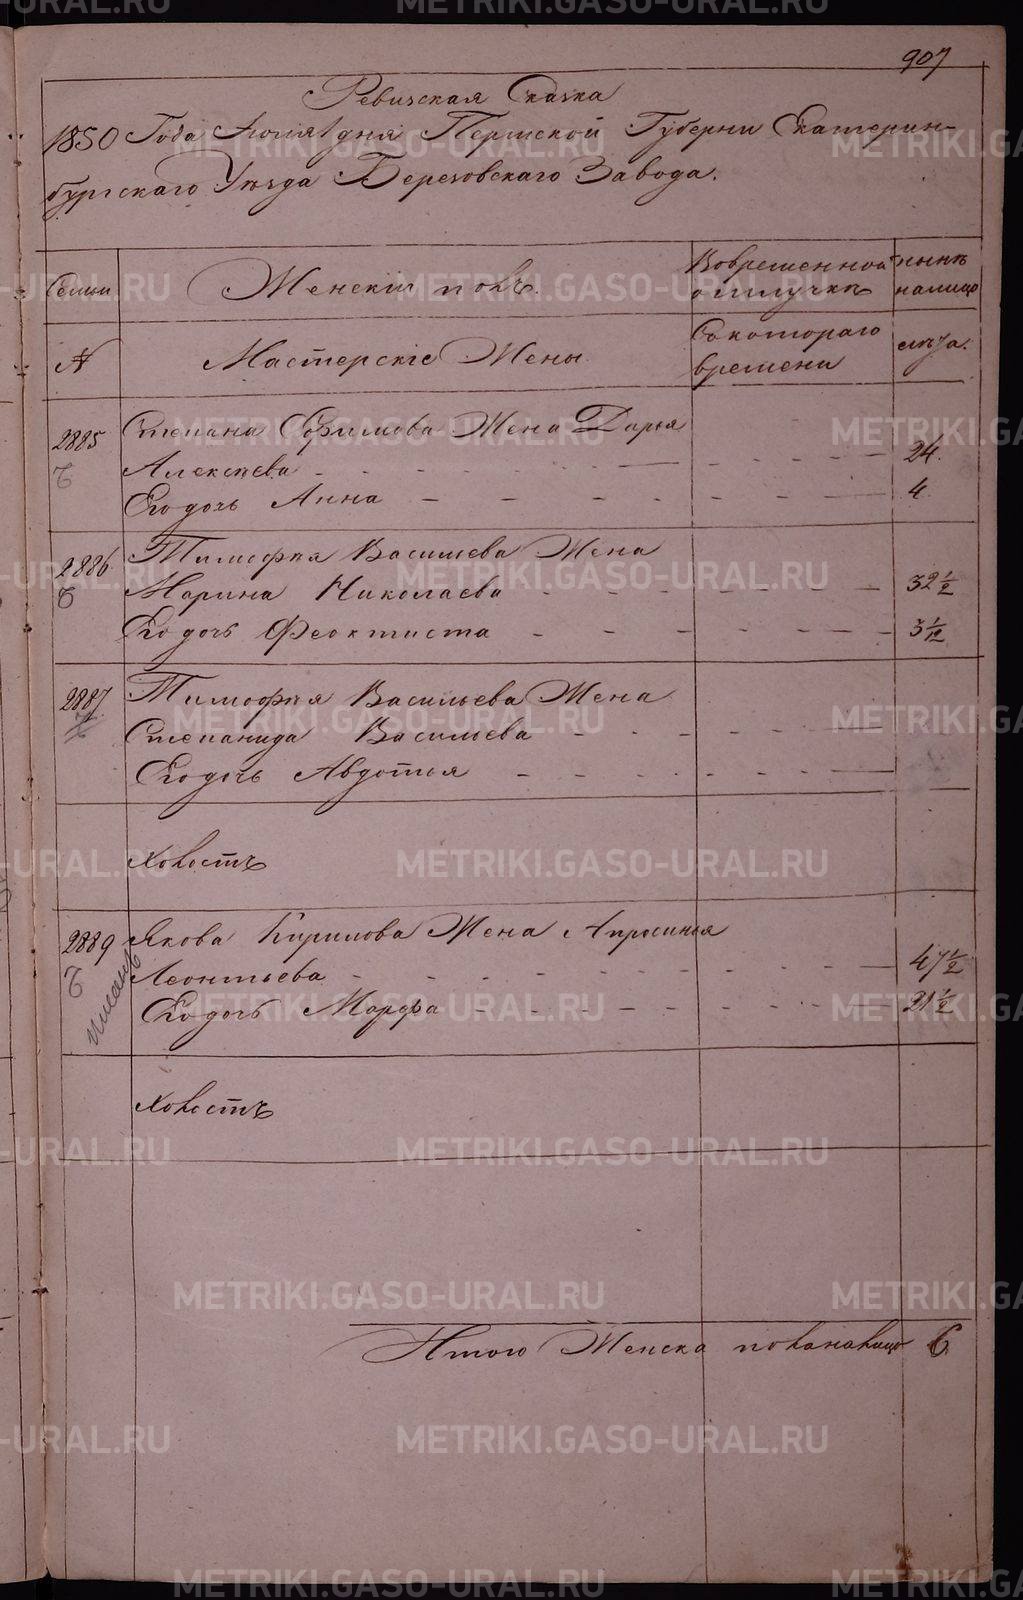 907
Ревизская Сказка
1850 Года Июля 1 дня Пермской Губерни Екатерин-
бургскаго Уезда Березовскаго Завода.
Семьи Женскiй полъ. Во временной ныне
отлучке налицо
№ Мастерскiе Жены Съ котораго лета.
времени
2885 Степана Ефимова Жена Дарья
Алексеева 24.
Ею дочь Анна 4.
2886 Тимофея Василева Жена
Марина Николаева 32 1/2
Ею дочь Феоктиста 3 1/12
2887. Тимофея Васильева Жена
Степанида Василева
Ею дочь Авдотья
Холостъ
2889 Якова Кирилова Жена Апросинья
Леонтьева 47 1/2
Ею дочь Марфа 21 1/2
Холостъ
Итого Женска пола налицо 6.
METRIKI.GASO-URAL.RU